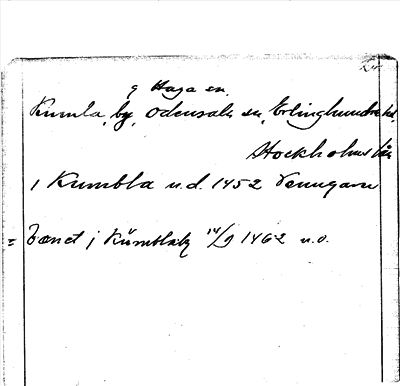 g Haga sn.
Kumla, by, Odensala sn, Erlinghundra hd,
Stockholms län
i Kumbla u.d. 1452 Venngarn
= Bænct j Kumblæ 14/9 1462 u.o.